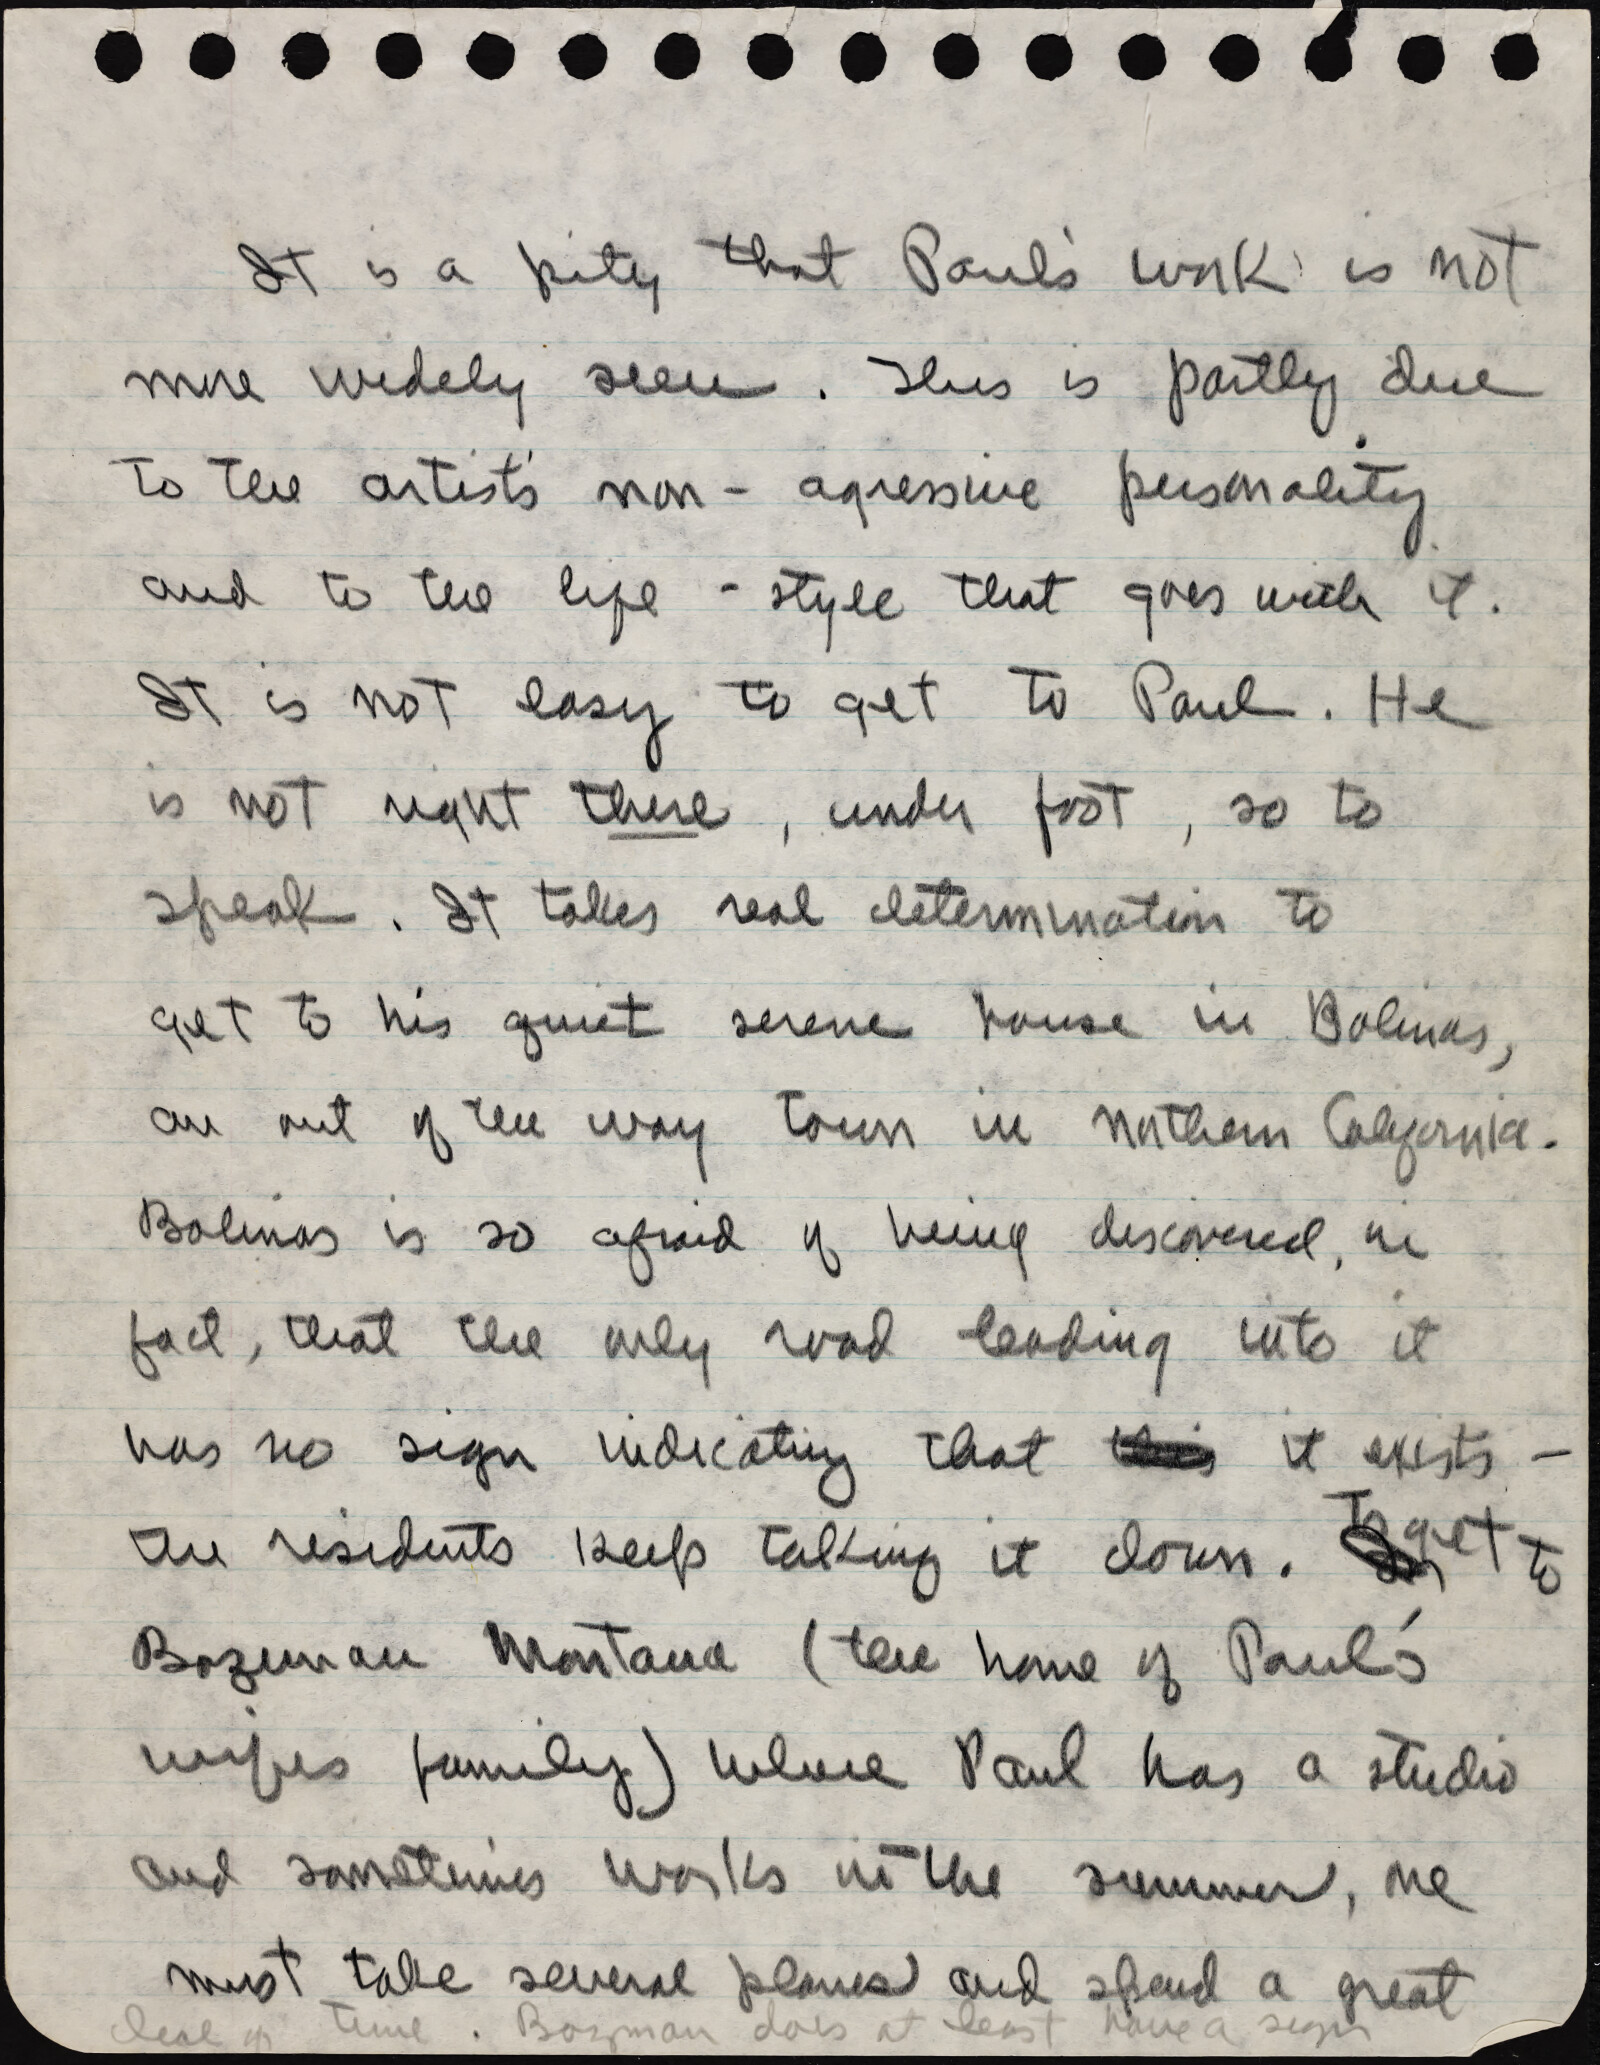 It is a pity that Paul's work is not
more widely seen. This is partly due
to the artist's non-agressive personality
and to the life-style that goes with it.
It is not easy to get to Paul. He
is not right there, under foot, so to
speak. It takes real determination to
get to his quiet serene house in Bolinas,
an out of the way town in northern California.
Bolinas is so afraid of being discovered, in
fact, that the only road leading into it
has no sign indicating that this it exists -
the residents keep taking it down. To get to
Bozeman Montana (the home of Paul's
wifes family) where Paul has a studio
and sometimes works in the summer, one
must take several planes and spend a great
deal of time. Bozman does at least have a sign